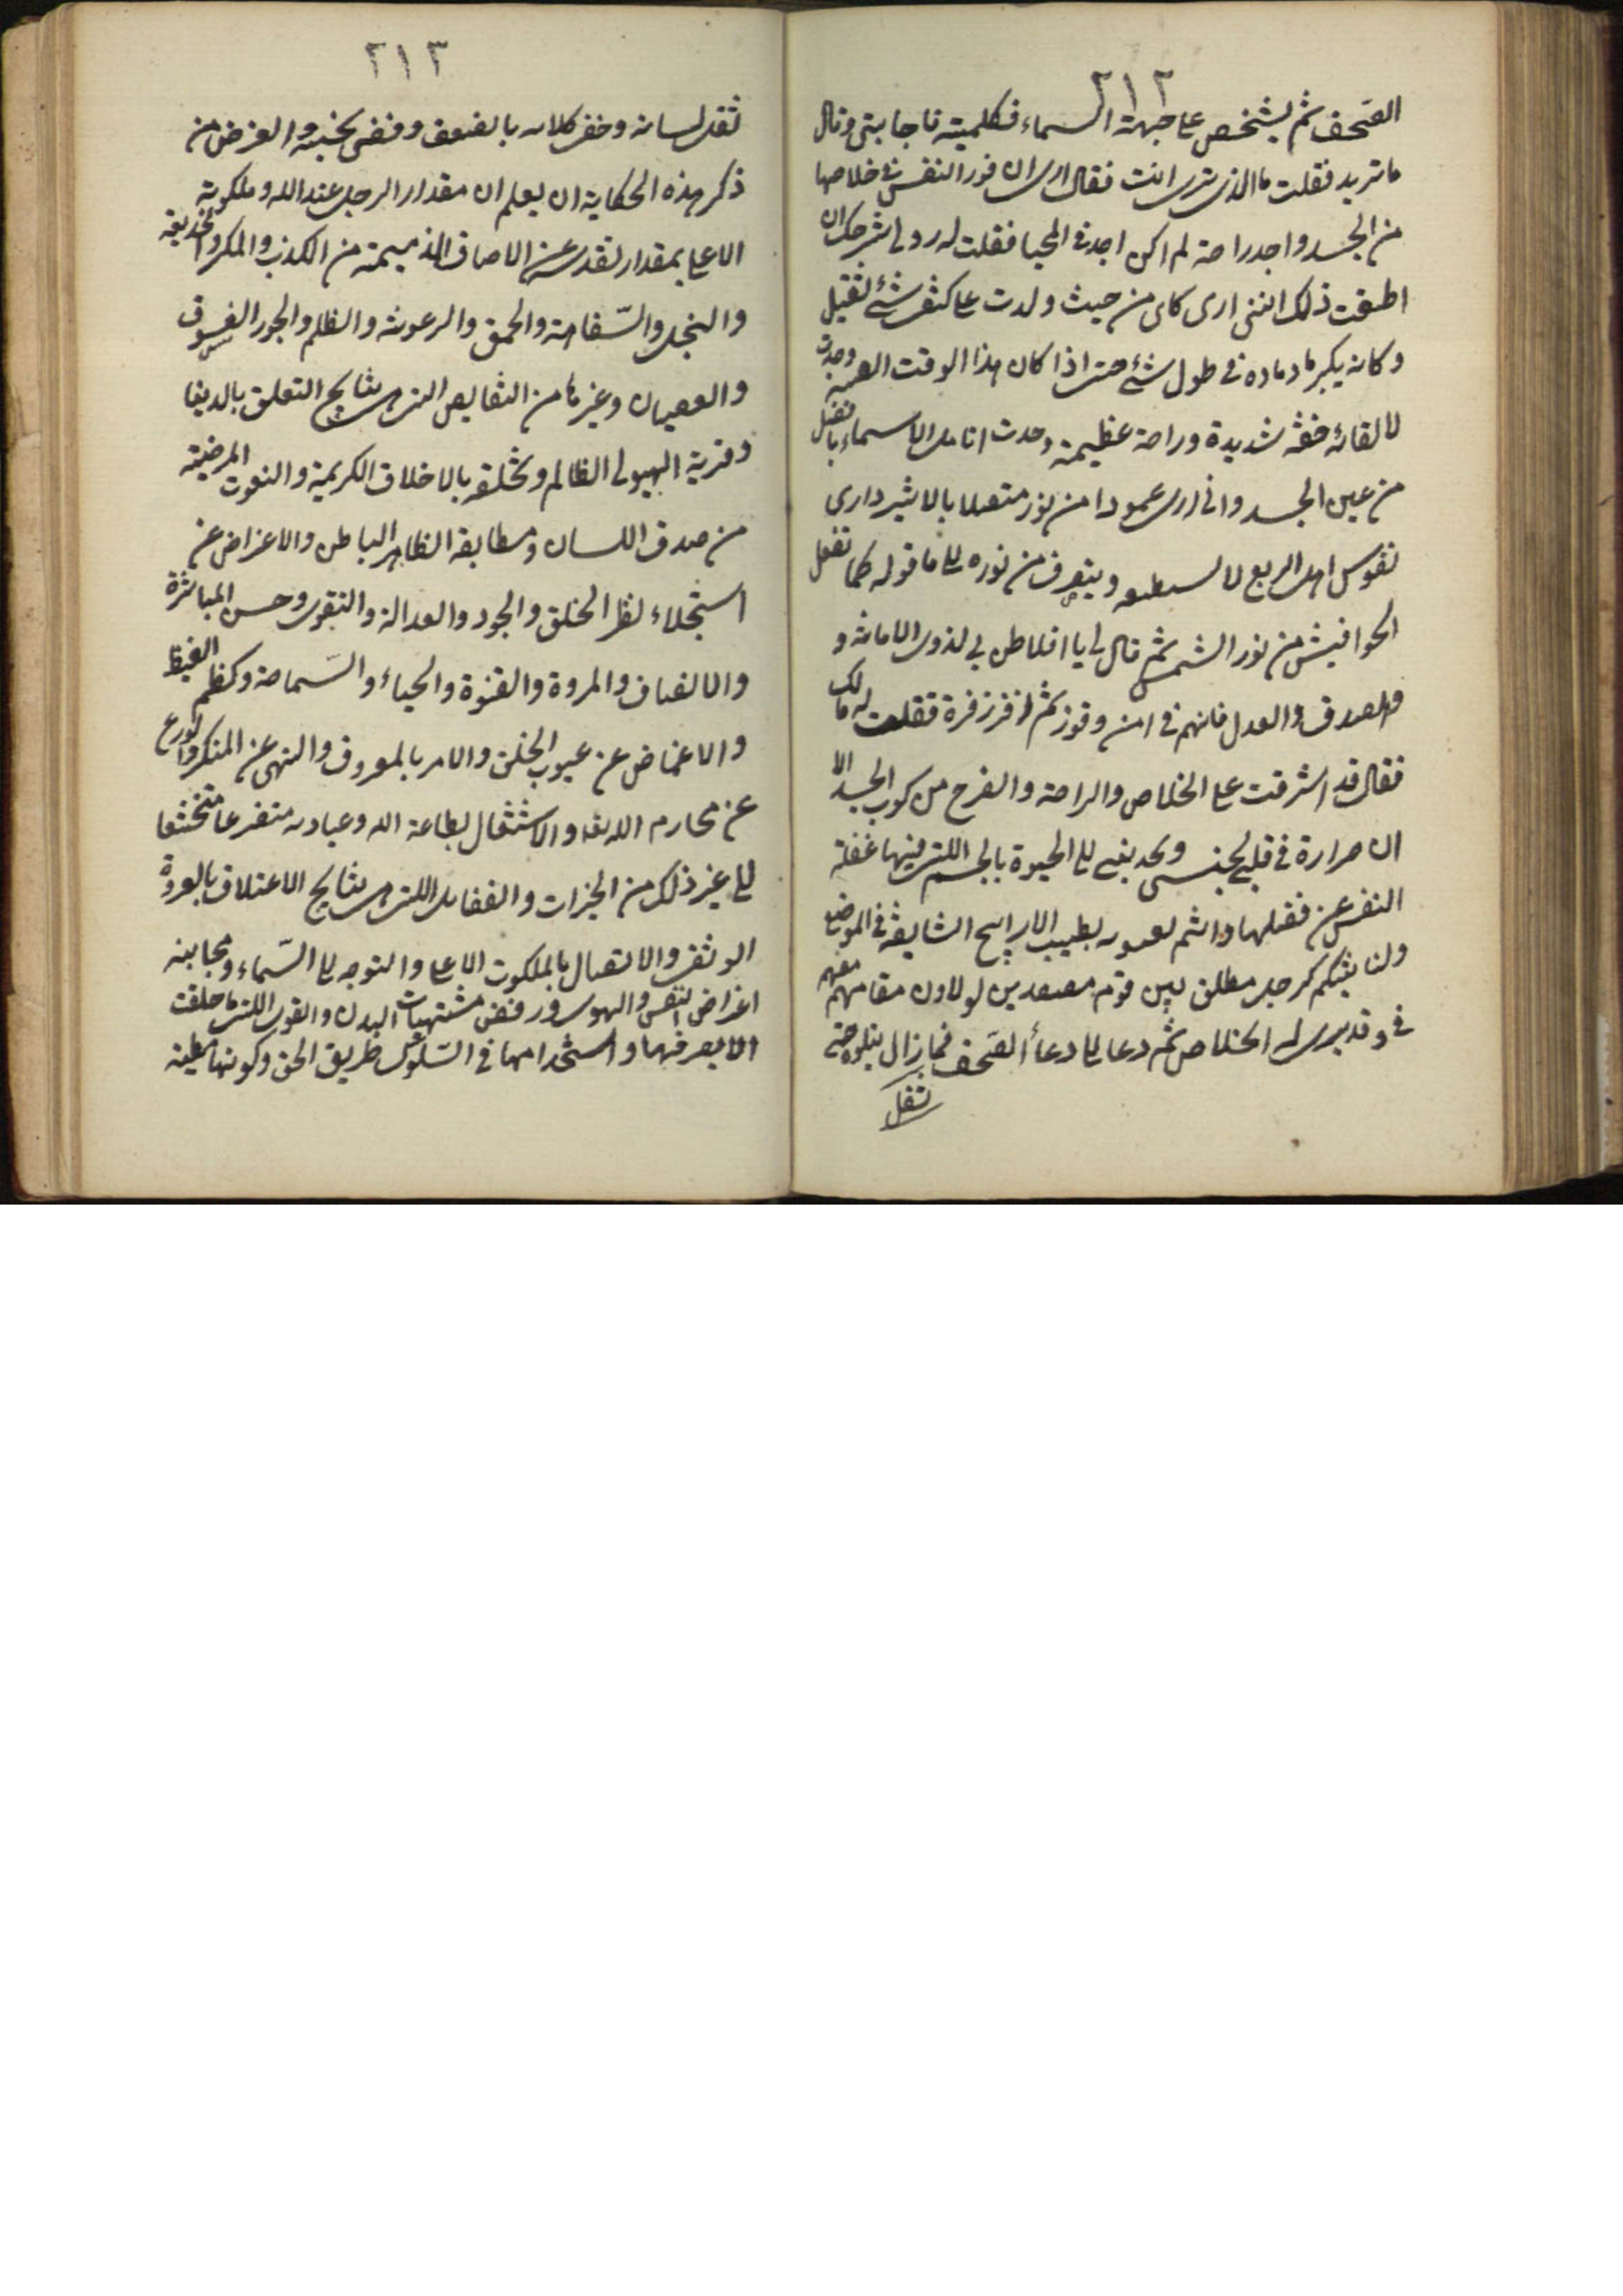 ٢١٢
الصحف ثم يشخص على جهة السماء فكلمته فاجابنى وقال
ما تريد فقلت ما الذى ترى انت فقال ارى ان فور النفس فى خلاصها
من الجسد واجد راحة لم اكن اجد فى المحيا فقلت له رد لى اشرحك ان
اطقت ذلك اننى ارى كانى من حيث ولدت على كتفى شئ ثقيل
وكانه يكبر مادماده فى طول شئ حتى اذا كان هذا الوقت وجدت
لالقائه خفة شديدة وراحة عظيمة وحدت انامل السماء بافضل
من عين الجسد وانى ارى عمودا من نور متصلا بالاثير دارى
نفوس اهل الربع لا تستطيعه ويتعرف من نوره الى ما قوله كما تفعل
الخوافيش من نور الشمس ثم قال لى يا افلاطن لى لذوى الامانة و
والصدق والعدل فانهم فى امن وفوز ثم زفر زفرة فقلت له مالك
فقال قد اشرفت على الخلاص والراحة والفرح من كرب الجسد الا
ان حرارة فى قلبى لجنسى ويحدبنى الى الحيوة بالجسم اللتى فيها غفلة
النفس عن فضلها واثم بطيب الاراييح الشايعة فى المواضع
ولنا بثكم كرجل مطلق بين قوم مصعدين لولا ون مقامهم معهم
فى وقد يرى له الخلاص ثم دعا الى دعاء الصحف فما زال يتلوه حتى
ثقل
٢١٣
ثقل لسانه وخفى كلامه بالضعف وقضى نحبه والغرض من
ذكر هذه الحكاية ان يعلم ان مقدار الرجل عند الله وملكوته
الاعلى بمقدار تقدسه عن الاصاف الذميمة من الكذب والمكر والخديعة
والبخل والسفاهة والحمق والرعونة والظلم والجور الفسوق
والعصيان وغيرها من النقايص التى هى نتايج التعلق بالدنيا
وقرية الهيولى الظالم وتخلقه بالاخلاق الكريمة والنعوت المرضية
من صدق اللسان ومطابقة الظاهر الباطن والاعراض عن
استجلاء نظر الخلق والجود والعدالة والتقوى وحسن المباشرة
والانصاف والمروة والفتوة والحياء والسماحة وكظم الغيظ
والاغماض عن عيوب الخلق والامر بالمعروف والنهى عن المنكر والورع
عن محارم الله تعالى والاشتغال بطاعة الله وعبادته متضرعا متخشعا
الى غير ذلك من الخيرات والفضايل اللتى هى نتايج الاعتلاق بالعروة
الوثقى والاتصال بالملكوت الاعلى والتوجه الى السماء ومجانبه
اغراض النفس والهوى ورفض مشتهيات البدن والقوى اللتى ما خلقت
الا بصرفها واستخدامها فى السلوك طريق الحق وكونها مطية